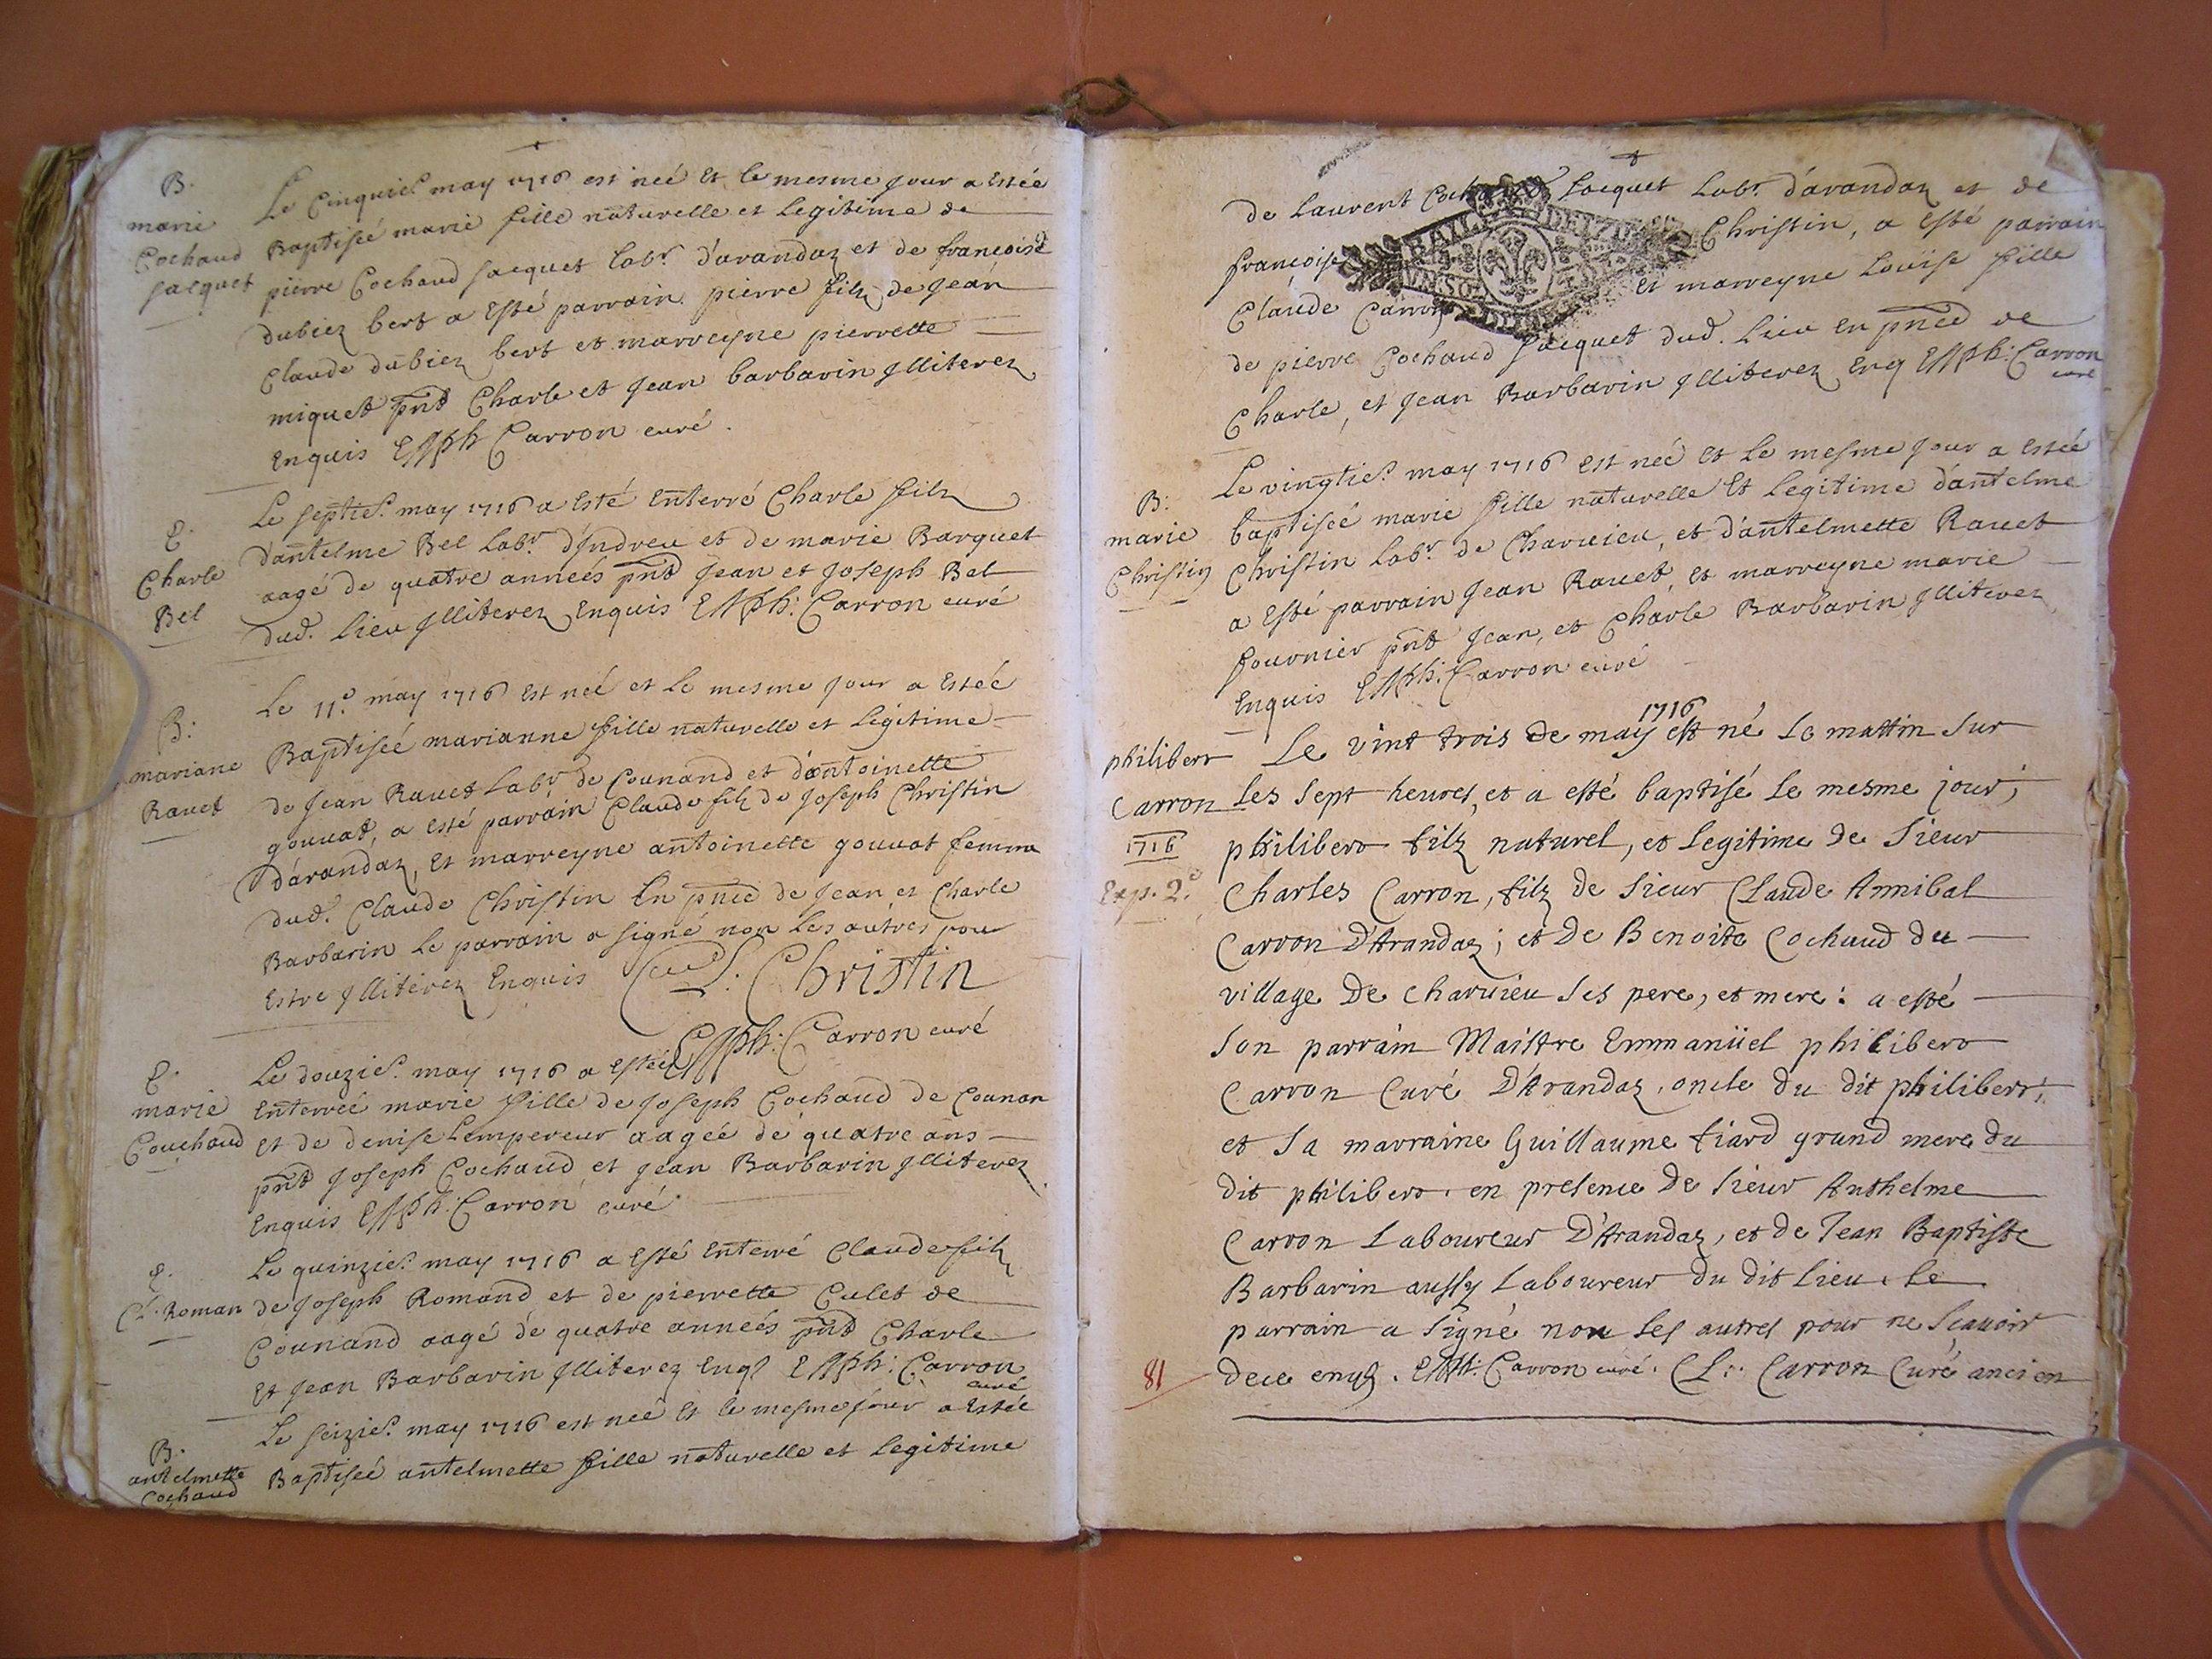 B.
marie
Cochaud
Jacquet
Le Cinquie.e may 1716 est neé Et le mesme Jour a Estée
Baptiseé marie fille naturelle et Legitime de
pierre Cochaud Jacquet lab.r d'arandaz et de francoise
dubiez bert a Esté parrain pierre filz de Jean
Claude dubiez bert et marreyne pierrette
miquet pnt Charle et Jean barbarin Jlliterez
Enquis E Ph Carron curé.
E.
Charle
Bel
Le septie.e may 1716 a Esté Enterré Charle filz
d'antelme Bel Lab.r d'Jndreu et de marie Barquet
aagé de quatre anneés pnt Jean et Joseph Bel
dud. Lieu Jlliterez Enquis E Ph: Carron curé
B:
mariane
Ravet
Le 11.e may 1716 Est neé et le mesme Jour a Estéé
Baptiseé marianne fille naturelle et legitime
de Jean Ravet Lab.r de Counand et d'antoinette
gouvat, a esté parrain Claude filz de Joseph Christin
d'arandaz, Et marreyne antoinette gouvat femme
dud. Claude Christin En pnce de Jean et Charle
Barbarin le parrain a signé non les autres pour
Estre Jlliterez Enquis Christin
E Ph: Carron curé
E.
marie
Couchaud
Le douzie.e may 1716 a esteé
Enterreé marie fille de Joseph Cochaud de Counan
et de denise Lempereur aageé de quatre ans
pnt Joseph Cochaud et Jean Barbarin Jlliterez
Enquis E Ph: Carron curé
E.
Cl. Roman
Le quinzie.e may 1716 a Esté Enterré Claude filz
de Joseph Romand et de pierrette Culet de
Counand aagé de quatre anneés pnt Charle
Et Jean Barbarin Jlliterez Enq E Ph: Carron
curé
B.
antelmette
Cochaud
Le seizie.e may 1716 est neé Et le mesme jour a Estée
Baptiseé antelmette fille naturelle et legitime
de Laurent Jacquet Lab.r d'arandaz et de
francoise Christin, a Esté parrain
Claude Carron et marreyne Louise fille
de pierre Cochaud Jacquet dud. Lieu En pnce de
Charle, et Jean Barbarin Jlliterez Enq E Ph: Carron
curé
B:
marie
Christin
Le vingtie.e may 1716 Est neé Et Le mesme Jour a Estéé
baptiseé marie fille naturelle Et Legitime d'antelme
Christin Lab.r de Charvieu, et d'antelmette Ravet
a Esté parrain Jean Ravet, et marreyne marie
fournier pnt Jean, et Charle Barbarin Jlliterez
Enquis E Ph: Carron curé
philibert
Carron
1716
Exp. 2.e
1716
Le vint trois de may est né le mattin sur
les sept heures, et a esté baptisé le mesme jour;
philibert filz naturel, et legitime de Sieur
Charles Carron, filz de Sieur Claude Annibal
Carron D'Arandaz; et de Benoite Cochaud du
village de Charvieu ses pere, et mere: a esté
son parrain Maistre Emmanüel philibert
Carron Curé D'Arandaz, oncle du dit philibert;
et sa marraine Guillaume tiard grand mere du
dit philibert. en presence de Sieur Anthelme
Carron Laboureur D'Arandaz, et de Jean Baptiste
Barbarin aussy Laboureur du dit lieu. le
parrain a signé non les autres pour ne scavoir
dece enqs. E Ph: Carron curé. Cl.: Carron Curé ancien
81